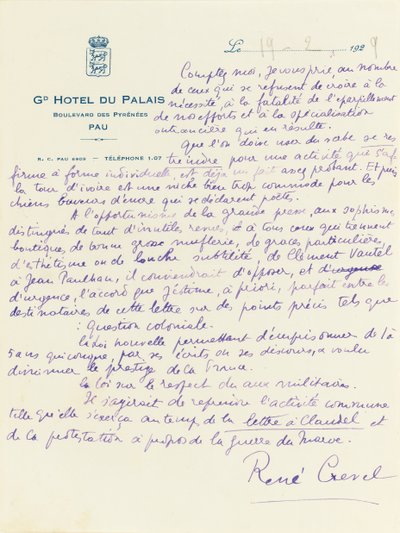 Le 19 - 2 1929
GD HOTEL DU PALAIS
BOULEVARD DES PYRÉNÉES
PAU
R. C. PAU 6802 - TÉLÉPHONE 1.07
Comptez moi, je vous prie, au nombre
de ceux qui se refusent de croire à la
nécessité, à la fatalité de l'éparpillement
de nos efforts et à la spécialisation
outrancière qui en résulte.
Que l'on doive user du sabre se res
treindre pour une activité que s'af
firme à forme individuelle, est déjà un fait assez pesant. Et puis
la tour d'ivoire est une niche bien trop commode pour les
chiens buveurs d'encre qui se déclarent poètes.
A l'opportunisme de la grande presse, aux sophismes
distingués de tant d'inutiles revues, et à tous ceux qui tiennent
boutiques de bonne grosse muflerie, de grâces particulières,
d'esthétisme ou de louche subtilité, de Clément Vautel
à Jean Paulhan, il conviendrait d'opposer, et d'urgence
d'urgence, l'accord que j'estime, à priori, parfait entre les
destinataires de cette lettre sur des points précis tels que
: Question coloniale.
La loi nouvelle permettant d'emprisonner de 1 à
5 ans quiconque, par ses écrits ou ses discours, a voulu
diminuer le prestige de la France.
la loi sur le respect du aux militaires.
Il s'agirait de reprendre l'activité commune
telle qu'elle s'exerça au temps de la lettre à Claudel et
de la protestation à propos de la guerre du Maroc.
René Crevel